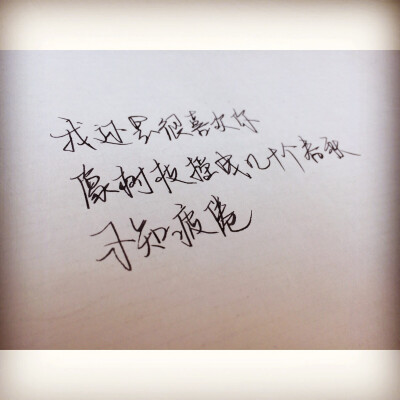 我还是很喜欢你
像树枝撑成几十个春秋
不知疲倦